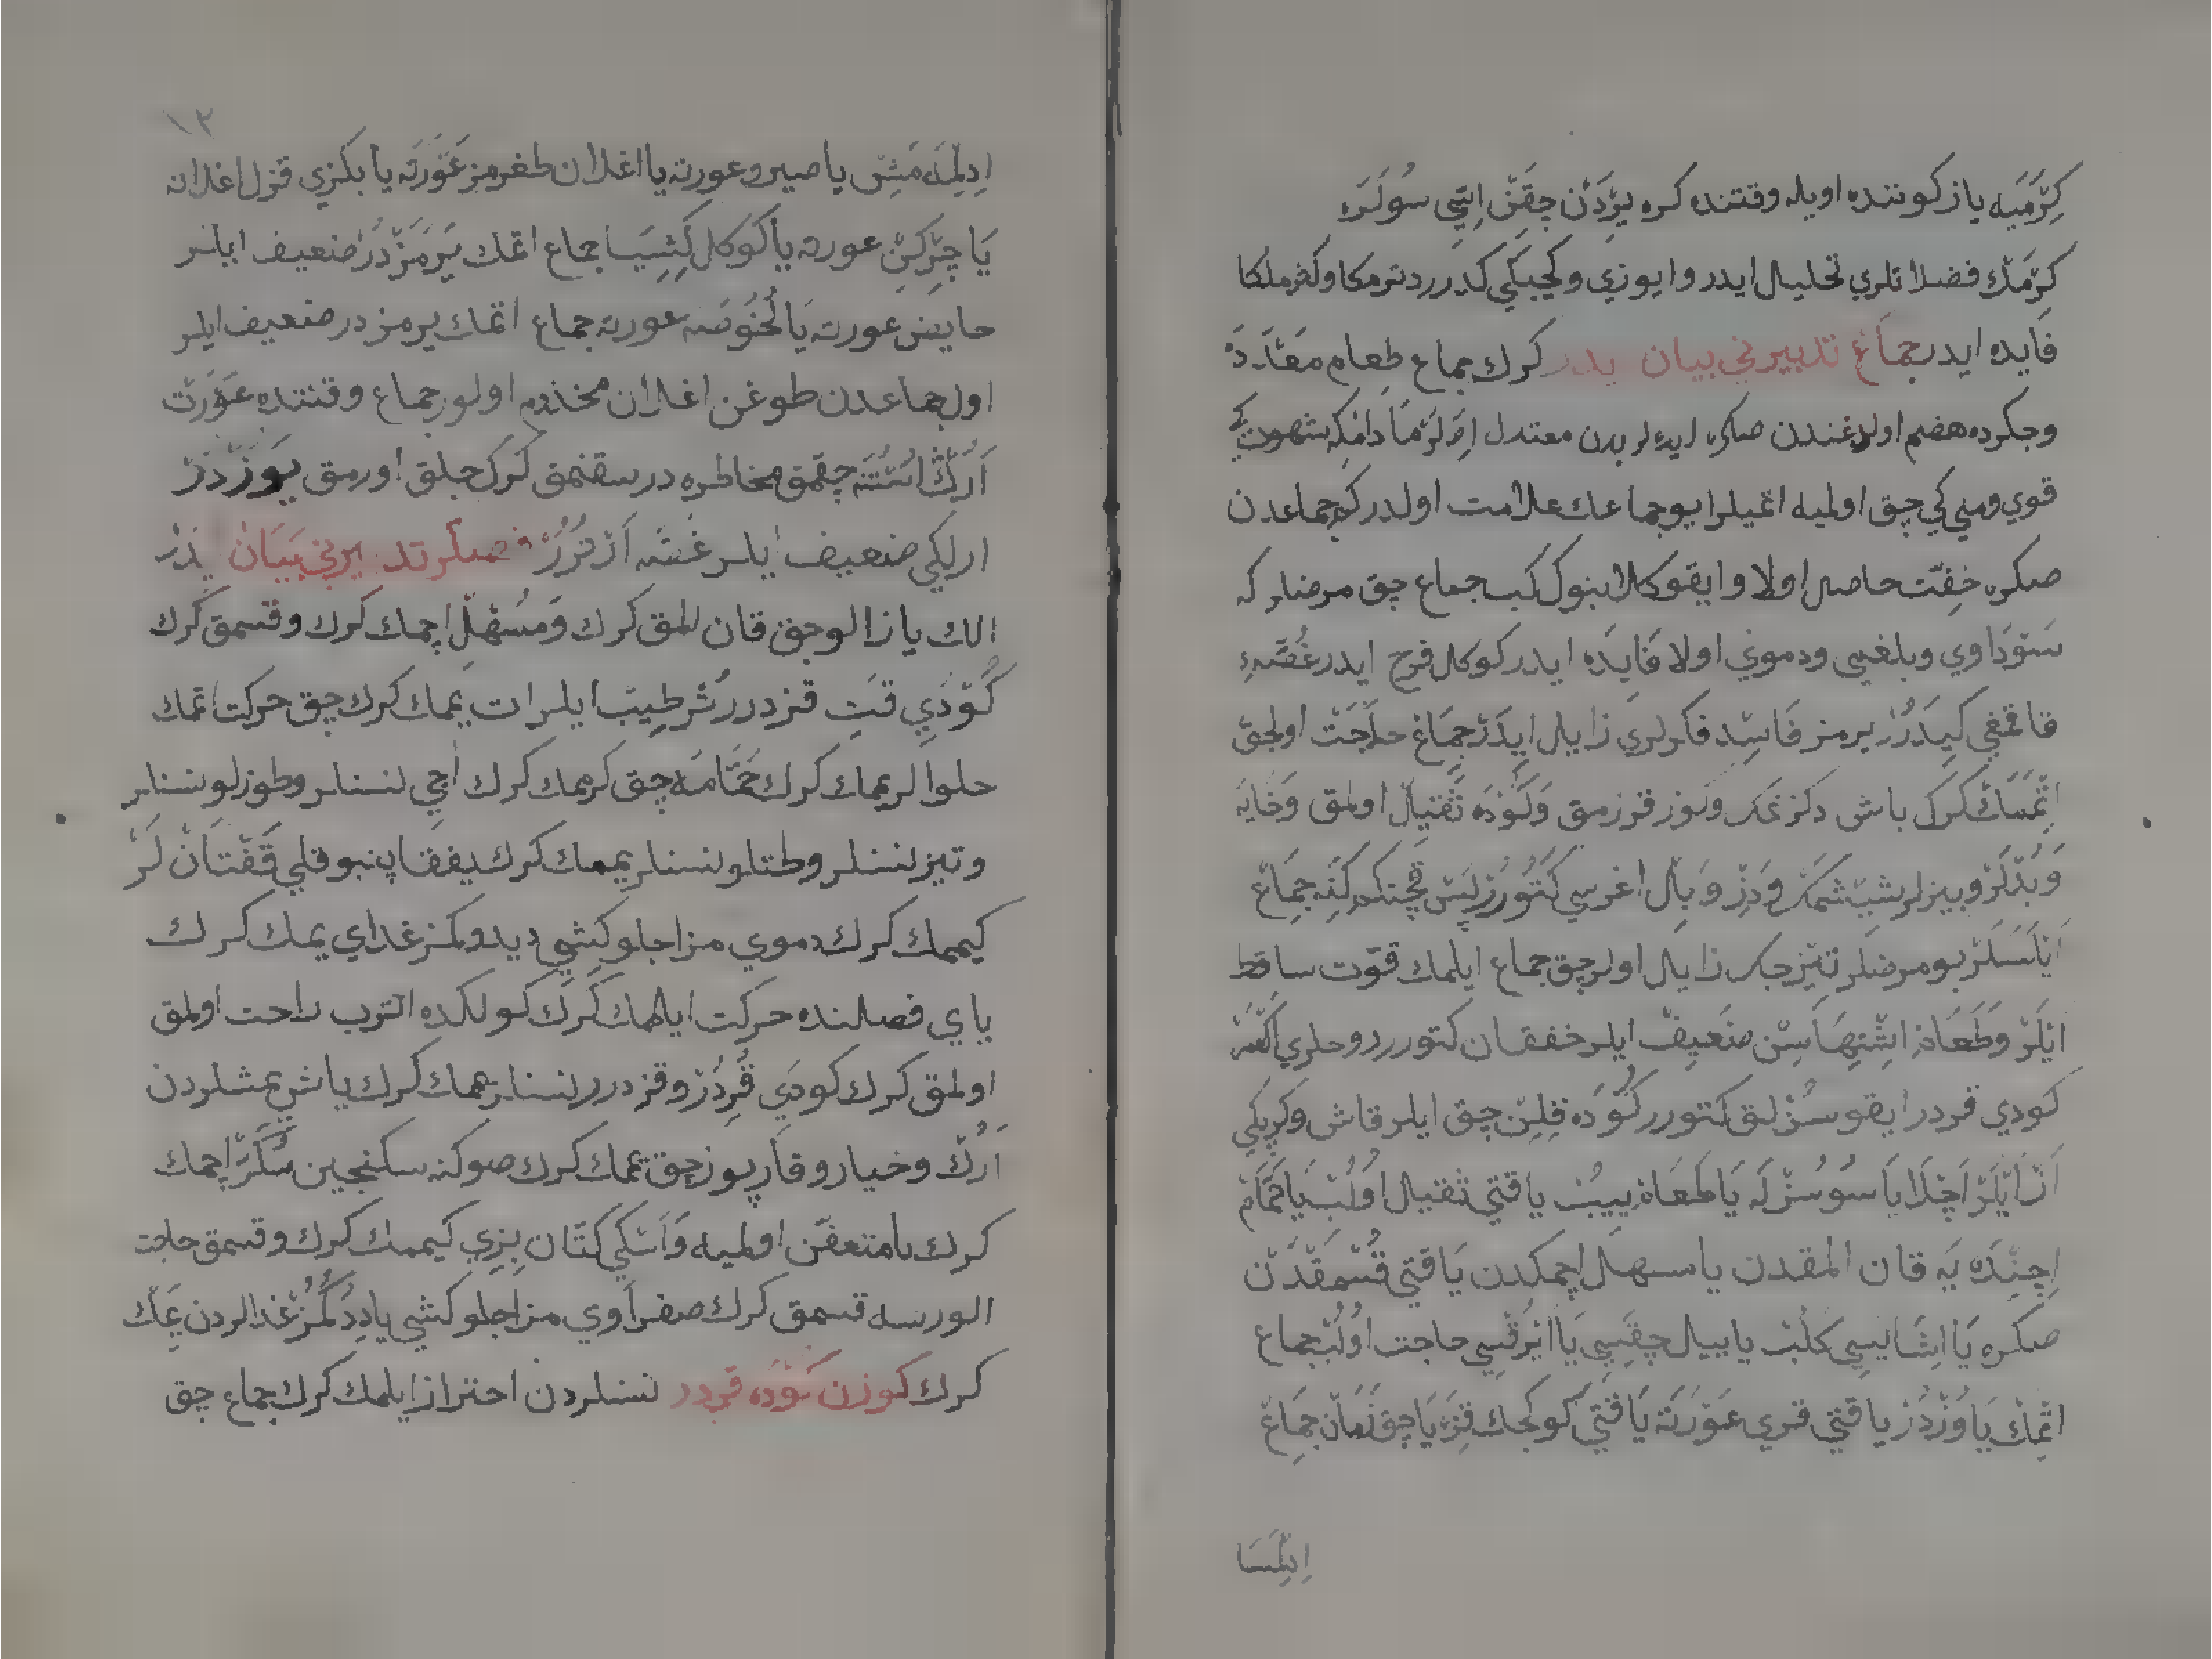 كِرْمَيَه ياز كوننده اويله وقتنده كره يِرْدَنْ چِقَنْ اِسِّي سُولَرَه
كِرْمَكْ فضلاتلري تحليل ايدر وايوزي وكجيكي كدرر دترمكا وكفرملكا
فَايده ايدر جِمَاعْ تدبيرني بيان يدر كرك جماع طعام مَعْدَدَه
وجكرده هضم اولدغندن صكره ايدلر بدن معتدل اِدَلَرْ مَادَامْكِه شهوت
قوي ومني كي چق اولميه اتميلر ايو جماعك علامت اولدر كه جماعدن
صكره خِفِّت حاصل اولا وايقو كلا بنوك كب جماع چق مرضلر كه
سَوْدَاوي وبلغمي ودموي اولا فَايدَه ايدر كوكل فرح ايدر غُصَّه
قاقمغي كِيدَرُرْ يرمز فَاسِد فكرلري زايل ايدَرْ جِمَاعْ حَاجَتْ اولجق
اِتْمَسَكْ كرك باش دكزنمك وكوز قرزمق وَكَوْدَه ثَقيلْ اولمق وَخَايَه
وَبُدْلَرْ وبيزلر شِيشمَك وَدِزْ وَبِالْ اغرسي كَتُورُرْ پَسْ قَچَنكِه كَنَه جِمَاعْ
اَيْلَسَلَرْ بو مرضلر تيزجك زايل اولر چق جماع ايلمك قوّت ساقط
ايلَرْ وَطَعَامْ اِشْتِهَاسِنْ ضَعِيفْ ايلر خفقان كتورر روحلري اَكْسَ
كودي قردر ايقوسُزْلق كتورر كَوْدَه قِلِنْ چق ايلر قاش وكِرپكي
اَزْ ايْلَرْ اَچْلَا يَا سُوسُزْلَه يَا طَعَامْ يِيبُ يا قتي ثقيل اوُلُبْ يَا حَمَّامْ
اِچِنْدَه يَه قان المقدن يا سهل اچمكدن يَا قتي قُسْمَقْدَنْ
صكره يَا اِشَا ايسي كلُبْ يا ييل چِقَسِي يَا ايرُقْسِي حاجت اوُلُبْ جماع
اتْمِكْ يَاوُزْدُرْ يا قتي قري عَوْرَتَه يَا قَتِي كوكجك قِزَه يَا چق زَمَانْ جِمَاعْ
اِيلَسَا
١٣
اِدِلْمَه مَشِنْ يا صيرو عورته يا اغلان طغرمز عَوْرَتَه يا بكزي قزل اغلانه
يَا چِرْكِنْ عورته يا كَوكل كِشِيَا جماع اتمك يَرَمَزْدُرْ ضعيف ايلر
حايض عورته يَا لُحُوصَه عورته جماع اتمك يرمزدر ضعيف ايلر
اول جماعدن طوغن اغلان مخذوم اولور جماع وقتنده عَوْرَتْ
اَرُكْ اُسْتُنَه چقمق مخاطره در سقنمق كَرَك جلق اورمق يَوُزْدُرْ
ارلكي ضعيف ايلر غُصَّه اَرْتُرُرْ فصلّر تدبيرني بَيَانْ يدَرْ
الك يازا الوجق قان المق كرك وَمُسْهِلْ اچمك كرك وقسمق كرك
كَوْدَي قَتِ قزدرر شَرْطِيبْ ايلر ات يمك كرك چق حركت اتمك
حلوالر يمك كرك حَمَّامَه چق كرممك كرك اَجِي نسنلر وطوزلو نسنلر
وتيز نسنلر وطتلو نسنلر يممك كرك يفقا پنبوقلي قَفْتَانْ لَرْ
كيممك كرك دموي مزاجلو كشي ديدوكمز غداي يمك كرك
ياي فصلنده حركت ايلمك كَرَك كولكده اتورب راحت اولمق
اولمق كرك كودَيِ قُرِدُرْ وقزدرر نسنلر يممك كرك ياش يمشلردن
اَرُكْ وخيار وقارپوز چق يمك كرك صوكنه سكنجبين شَكَرْ اچمك
كرك تا متعفّن اولميه وَاَسْكِي كتّان بِزِي كيممك كرك وقسمق حاجت
الورسه قسمق كرك صفرَاوي مزاجلو كشي يا دِدُكُمُزْ غدالردن يَمَكْ
كرك كوزن كَوْدَه قردر نسنلردن احتراز ايلمك كرك جماع چق